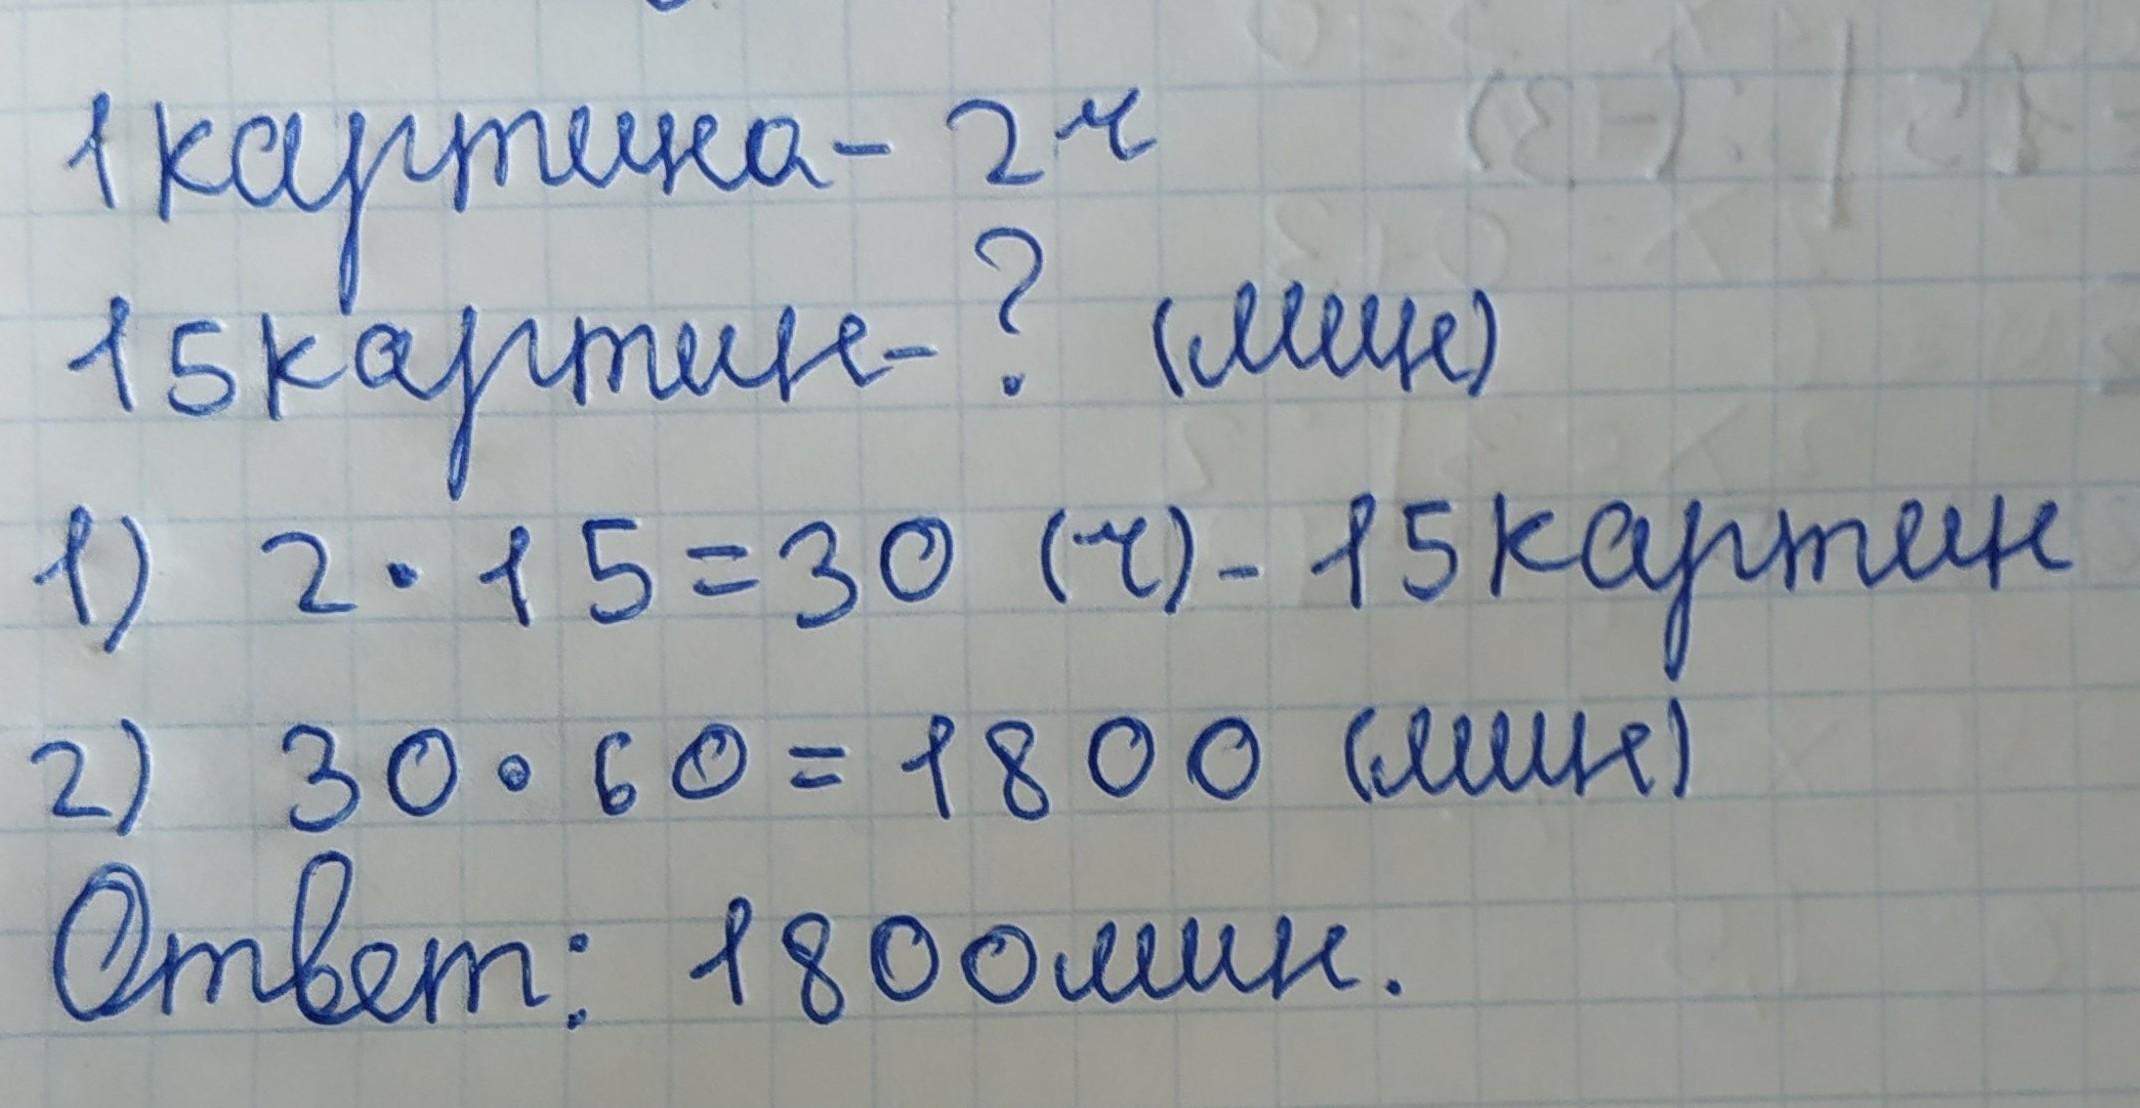 1 картина - 2 ч
15 картин - ? (мин)
1) 2 · 15 = 30 (ч) - 15 картин
2) 30 · 60 = 1800 (мин)
Ответ: 1800 мин.